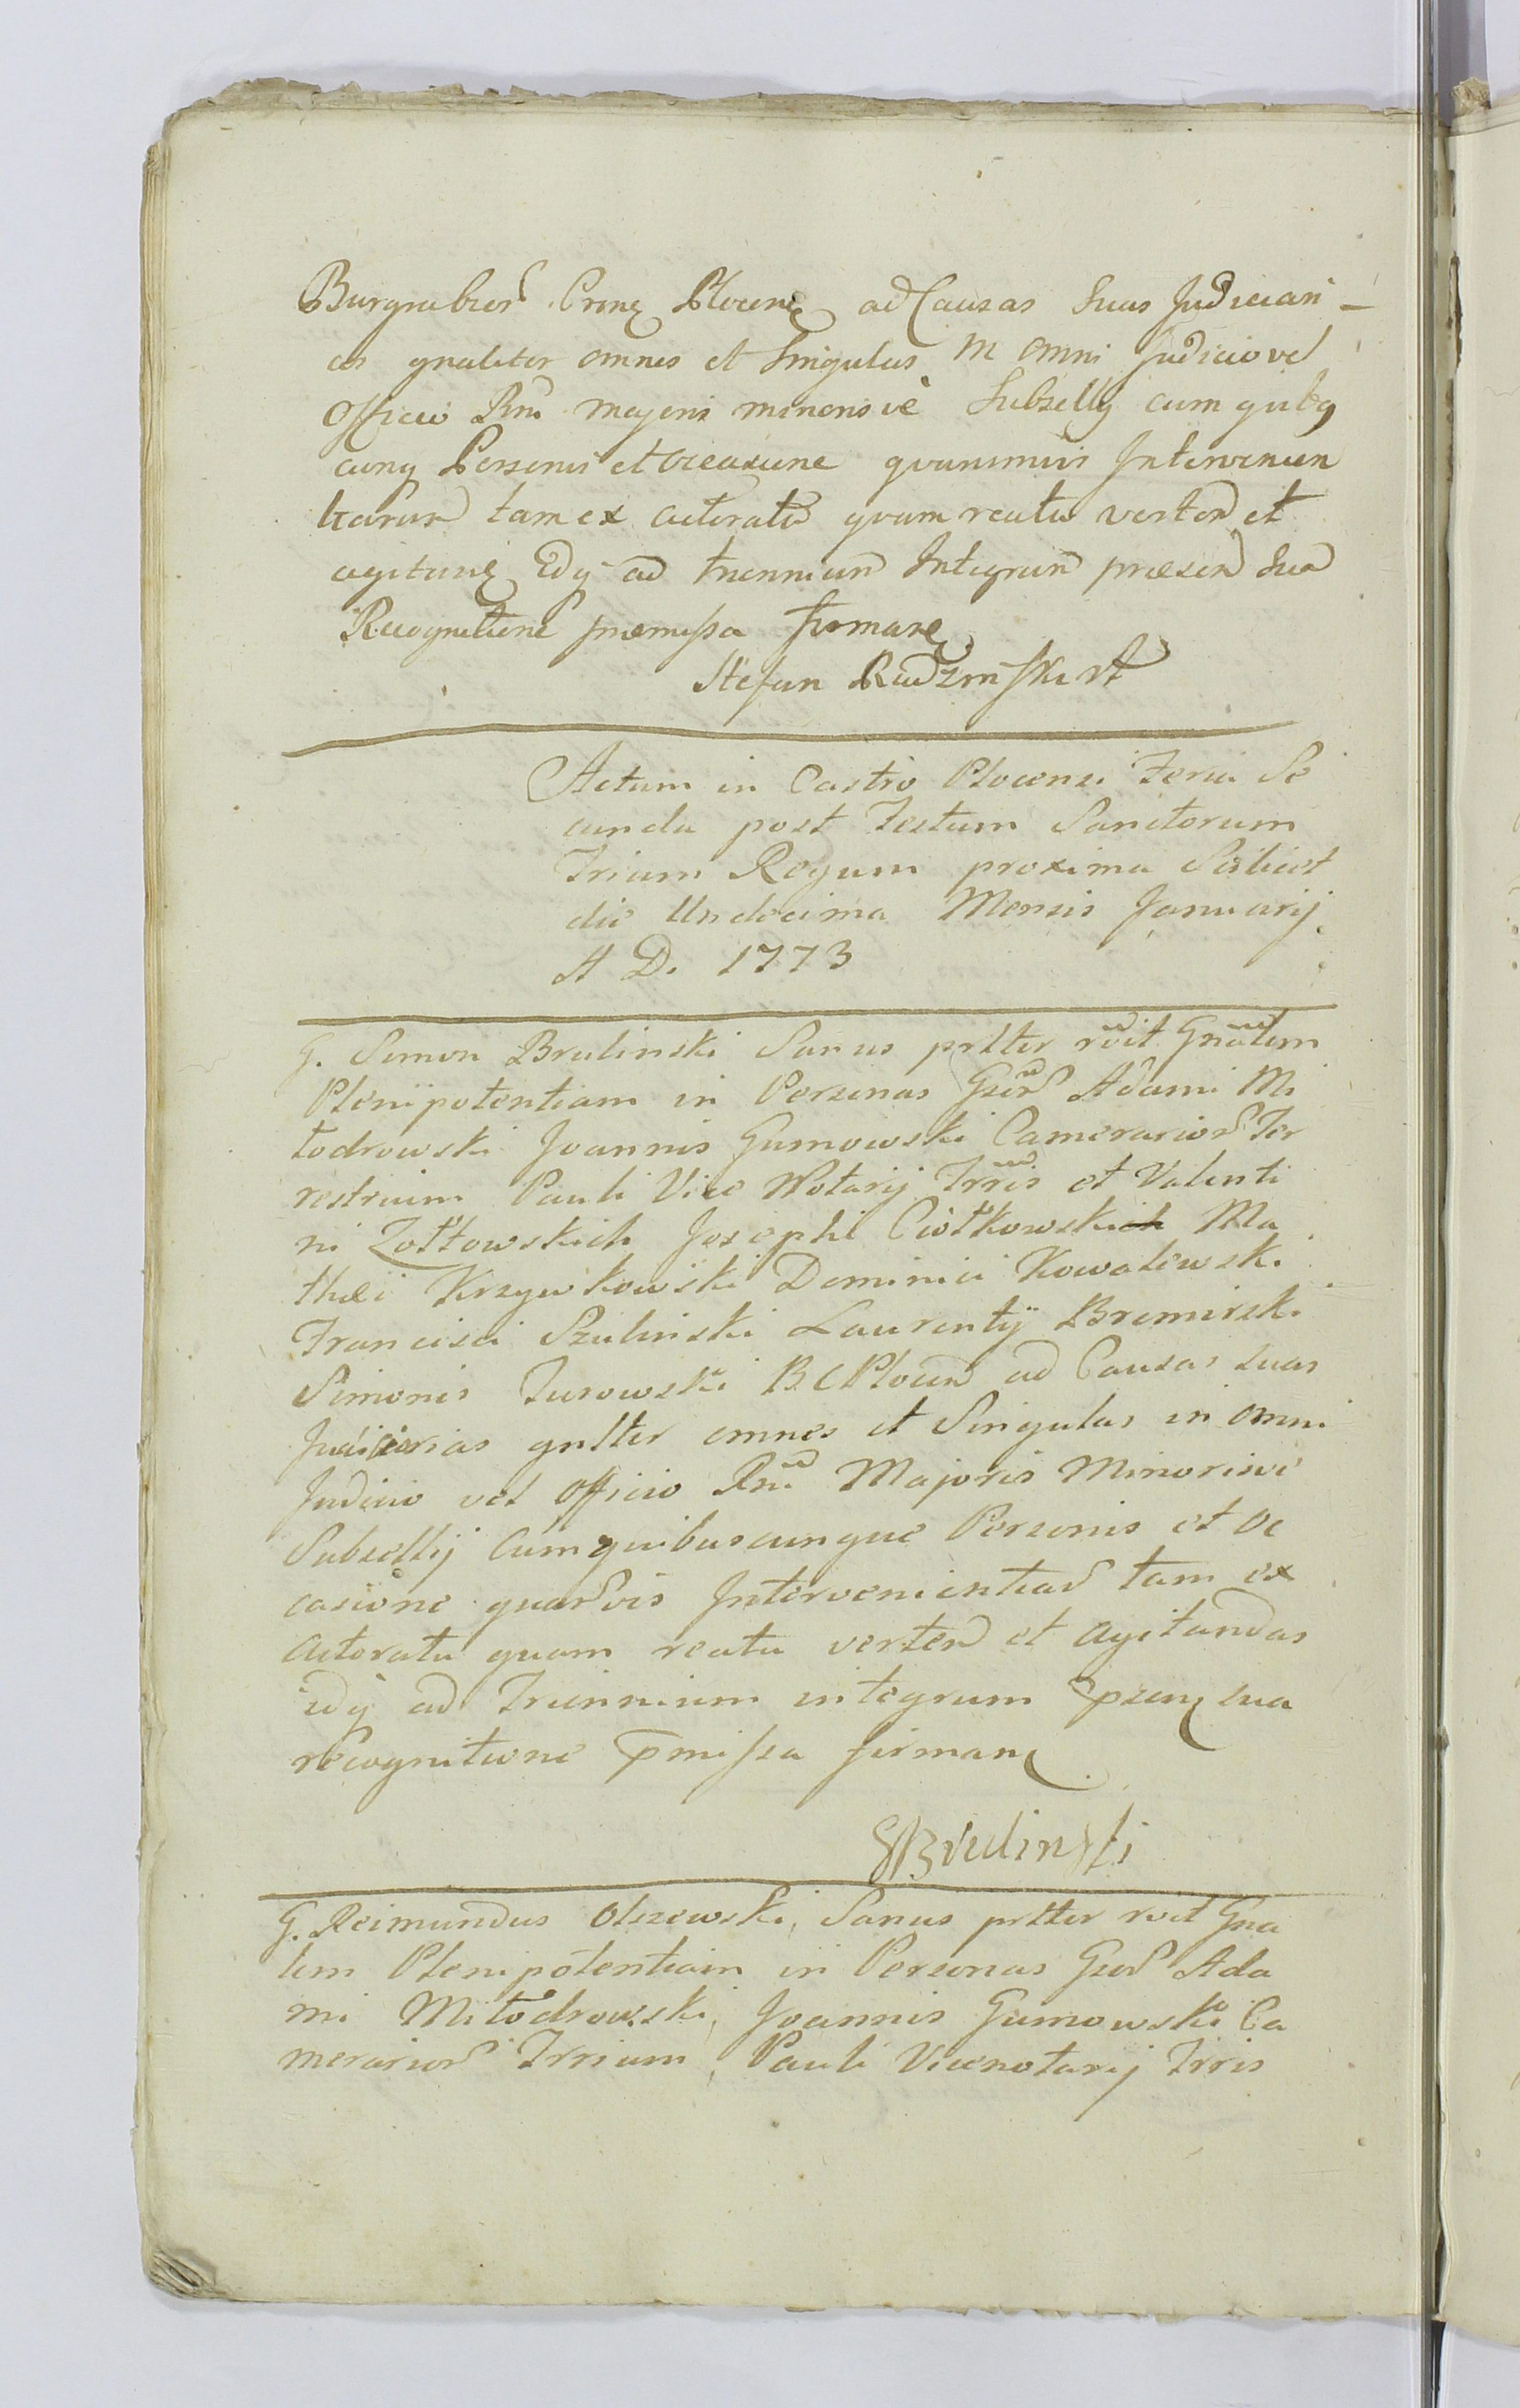 Burgrabior Crens Plocens ad Causas Suas Judiciari-
as gnaliter omnes et Singulas in omni Judicio vel
Officio Rni majoris minorisve Subsellij cum quibq
cunq Personis et occasione quarumvis Intervenien
tiarum tam ex actoratu quam reatu verten et
agitans Idq ad triennium Integrum praesen Sua
Recognitione praemissa firmans
Stefan Rudzinski
Actum in Castro Plocensi Feria Se
cunda post Festum Sanctorum
Trium Regum proxima Scilicet
die Undecima Mensis Januarij
A D. 1773
G. Simon Brulinski Sanus prltter rcit Gnalem
Plenipotentiam in Personas Gser Adami Mi
łodrowski Joannis Gumowski Camerarior Ter
restrium Pauli Vice Notarij Trris et Valenti
ni Zołtowskich Josephi Ciołkowski Ma
thæi Krzywkowski Dominici Kowalewski
Francisci Szulinski Laurentij Bromirski
Simonis Turowski B C Plocen ad Causas suas
Judicias gnltter omnes et Singulas in omni
Judicio vel Officio Rni Majoris Minorisve
Subsellij Cum quibuscunque Personis et oc
casione quarvis Intervenientiar tam ex
actoratu quam reatu verten et agitandas
idq ad Triennium integrum psens sua
recognitione pmissa firmans
SBrulinski
G. Reimundus Olszewski, Sanus prltter rcit Gna
lem Plenipotentiam in Personas Gser Ada
mi Miłodrowski, Joannis Gumowski Ca
merarior Trrium, Pauli Vicenotarij Trris